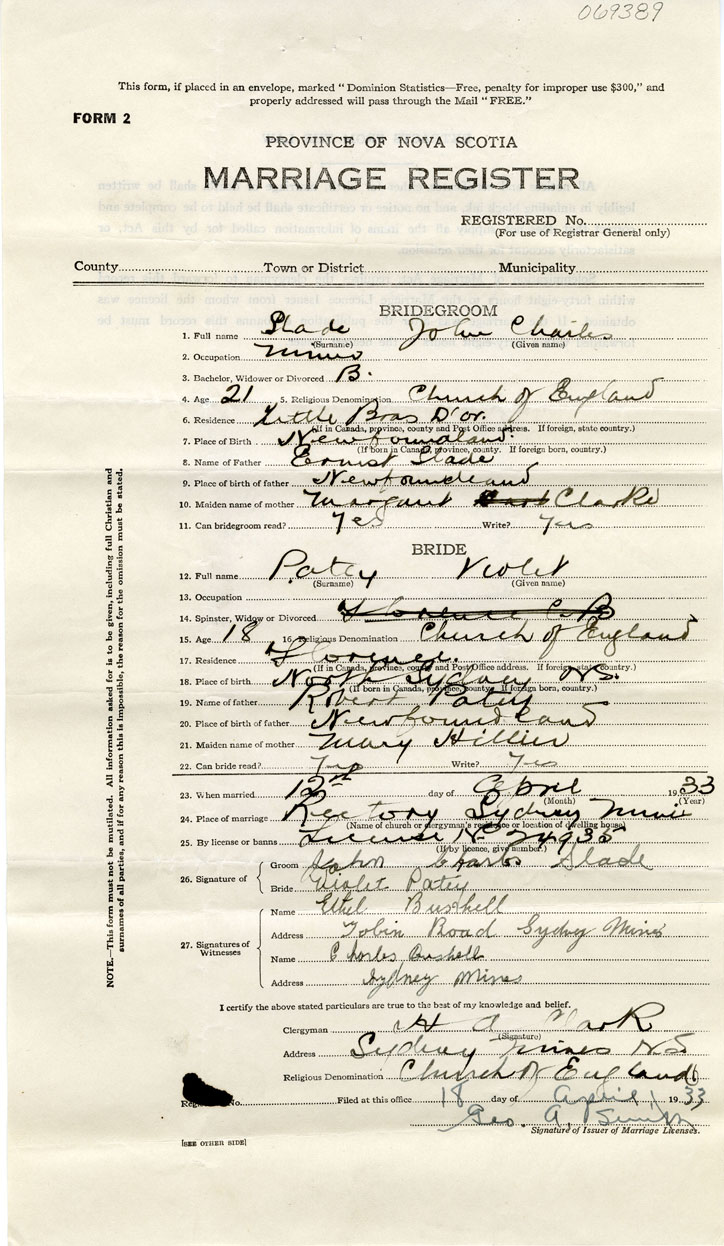 069389
This form, if placed in an envelope, marked "Dominion Statistics—Free, penalty for improper use $300," and
properly addressed will pass through the Mail "FREE."
FORM 2
PROVINCE OF NOVA SCOTIA
MARRIAGE REGISTER
REGISTERED No.
(For use of Registrar General only)
County Town or District Municipality
BRIDEGROOM
1. Full name Slade John Charles
(Surname) (Given name)
2. Occupation Miner
3. Bachelor, Widower or Divorced B.
4. Age 21 5. Religious Denomination Church of England
6. Residence Little Bras D'or.
(If in Canada, province, county and Post Office address. If foreign, state country.)
7. Place of Birth Newfoundland.
(If born in Canada, province, county. If foreign born, country.)
8. Name of Father Ernest Slade
9. Place of birth of father Newfoundland
10. Maiden name of mother Margaret Clarke
11. Can bridegroom read? Yes Write? Yes
BRIDE
12. Full name Patey Violet
(Surname) (Given name)
13. Occupation
14. Spinster, Widow or Divorced Florence C.B
15. Age 18 16. Religious Denomination Church of England
17. Residence Florence.
(If in Canada, province, county and Post Office address. If foreign, state country.)
18. Place of birth North Sydney N.S.
(If born in Canada, province, county. If foreign born, country.)
19. Name of father Robert Patey
20. Place of birth of father Newfoundland
21. Maiden name of mother Mary Hillier
22. Can bride read? Yes Write? Yes
23. When married 12th day of April 1933
(Month) (Year)
24. Place of marriage Rectory Sydney Mines
(Name of church or clergyman's residence or location of dwelling house)
25. By license or banns License No 24935
(If by licence, give number.)
26. Signature of Groom John Charles Slade
Bride Violet Patey
27. Signatures of Witnesses
Name Ethel Bushell
Address Tobin Road Sydney Mines
Name Charles Bushell
Address Sydney Mines
I certify the above stated particulars are true to the best of my knowledge and belief.
Clergyman A Clark
(Signature)
Address Sydney Mines N.S
Religious Denomination Church of England
No. Filed at this office 18 day of April 1933
Geo. A. Smith
Signature of Issuer of Marriage Licenses.
[SEE OTHER SIDE]
NOTE.—This form must not be mutilated. All information asked for is to be given, including full Christian and
surnames of all parties, and if for any reason this is impossible, the reason for the omission must be stated.